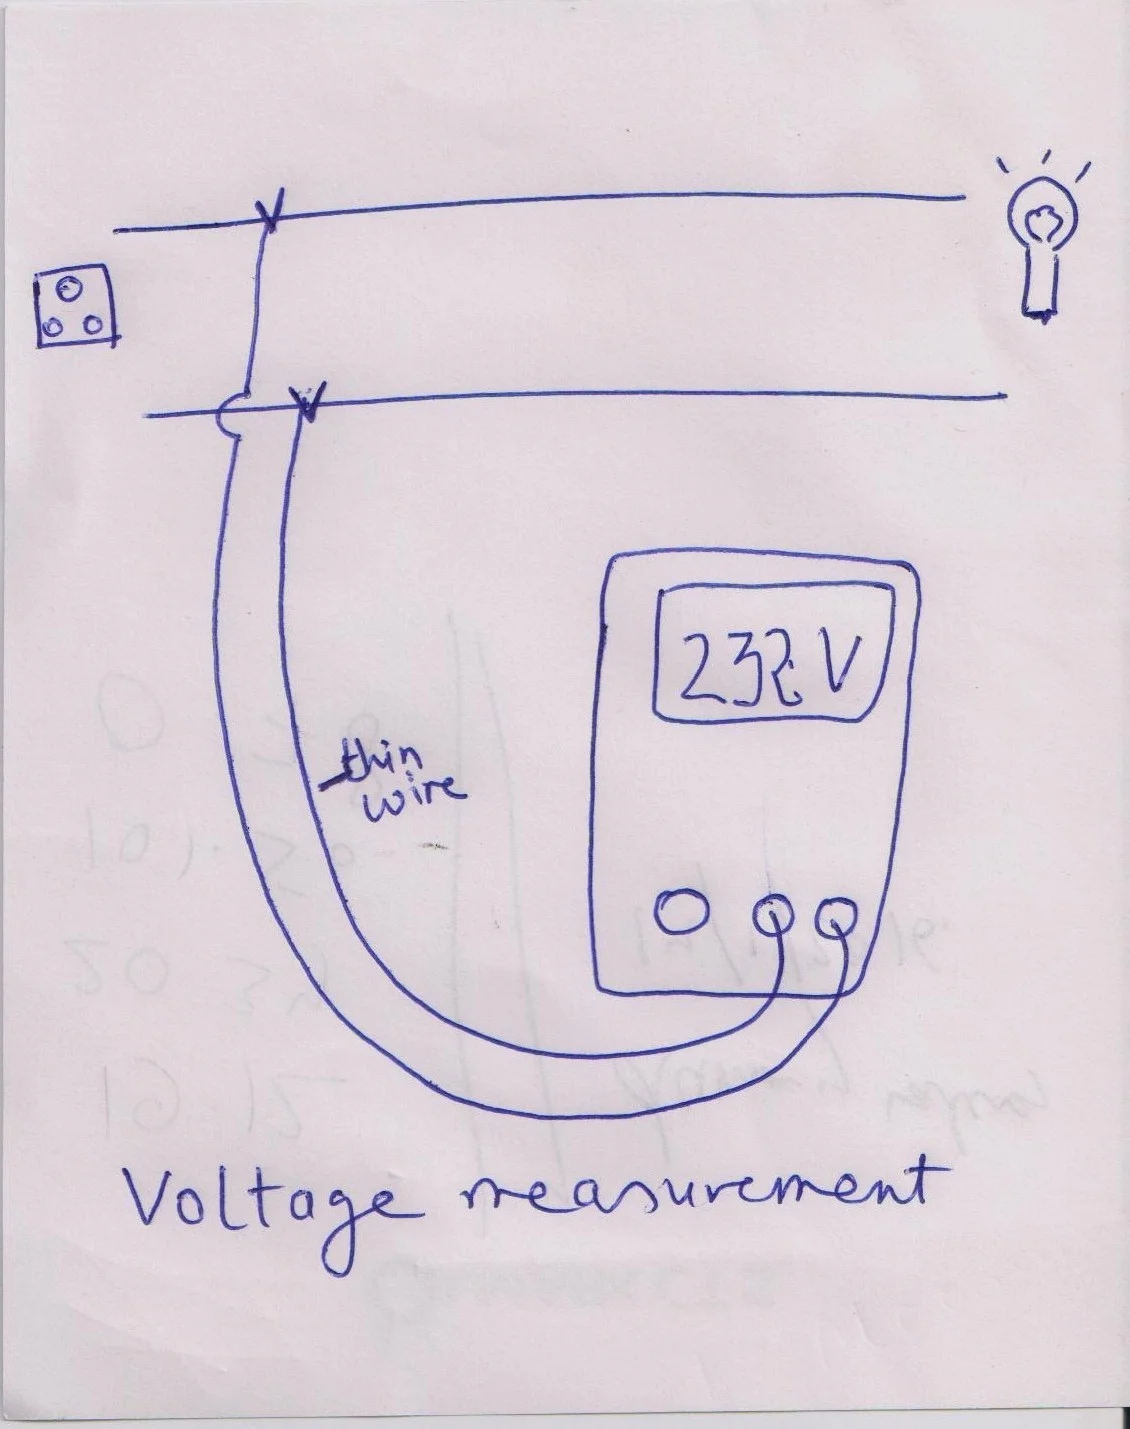 232 V
thin
wire
Voltage measurement